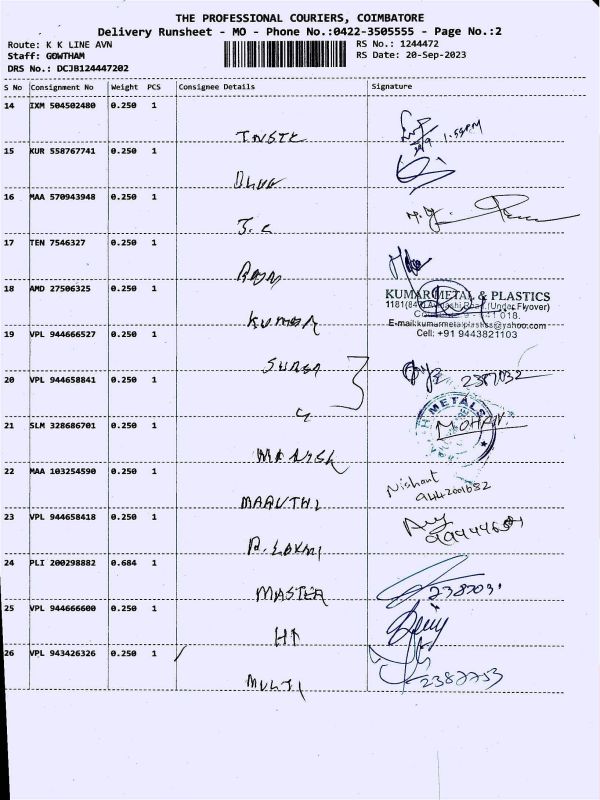 THE PROFESSIONAL COURIERS, COIMBATORE
Delivery Runsheet - MO - Phone No.:0422-3505555 - Page No.:2
Route: K K LINE AVN
RS No.: 1244472
Staff: GOWTHAM
RS Date: 20-Sep-2023
DRS No.: DCJB124447202
S No Consignment No Weight PCS Consignee Details Signature
14 IXM 504502480 0.250 1
1.55PM
15 KUR 558767741 0.250 1
16 MAA 570943948 0.250 1
17 TEN 7546327 0.250 1
18 AMD 27506325 0.250 1
KUMAR METAL & PLASTICS
(Under Flyover)
641 018.
E-mail:kumarmetalplastics@yahoo.com
Cell: +91 9443821103
KUMAR
19 VPL 944666527 0.250 1
20 VPL 944658841 0.250 1
2387032
METALS
21 SLM 328686701 0.250 1
MOHAN
22 MAA 103254590 0.250 1
Nishant
MARUTHI
23 VPL 944658418 0.250 1
R. LAXMI
24 PLI 200298882 0.684 1
MASTER
25 VPL 944666600 0.250 1
HI
26 VPL 943426326 0.250 1
MULTI
2387753